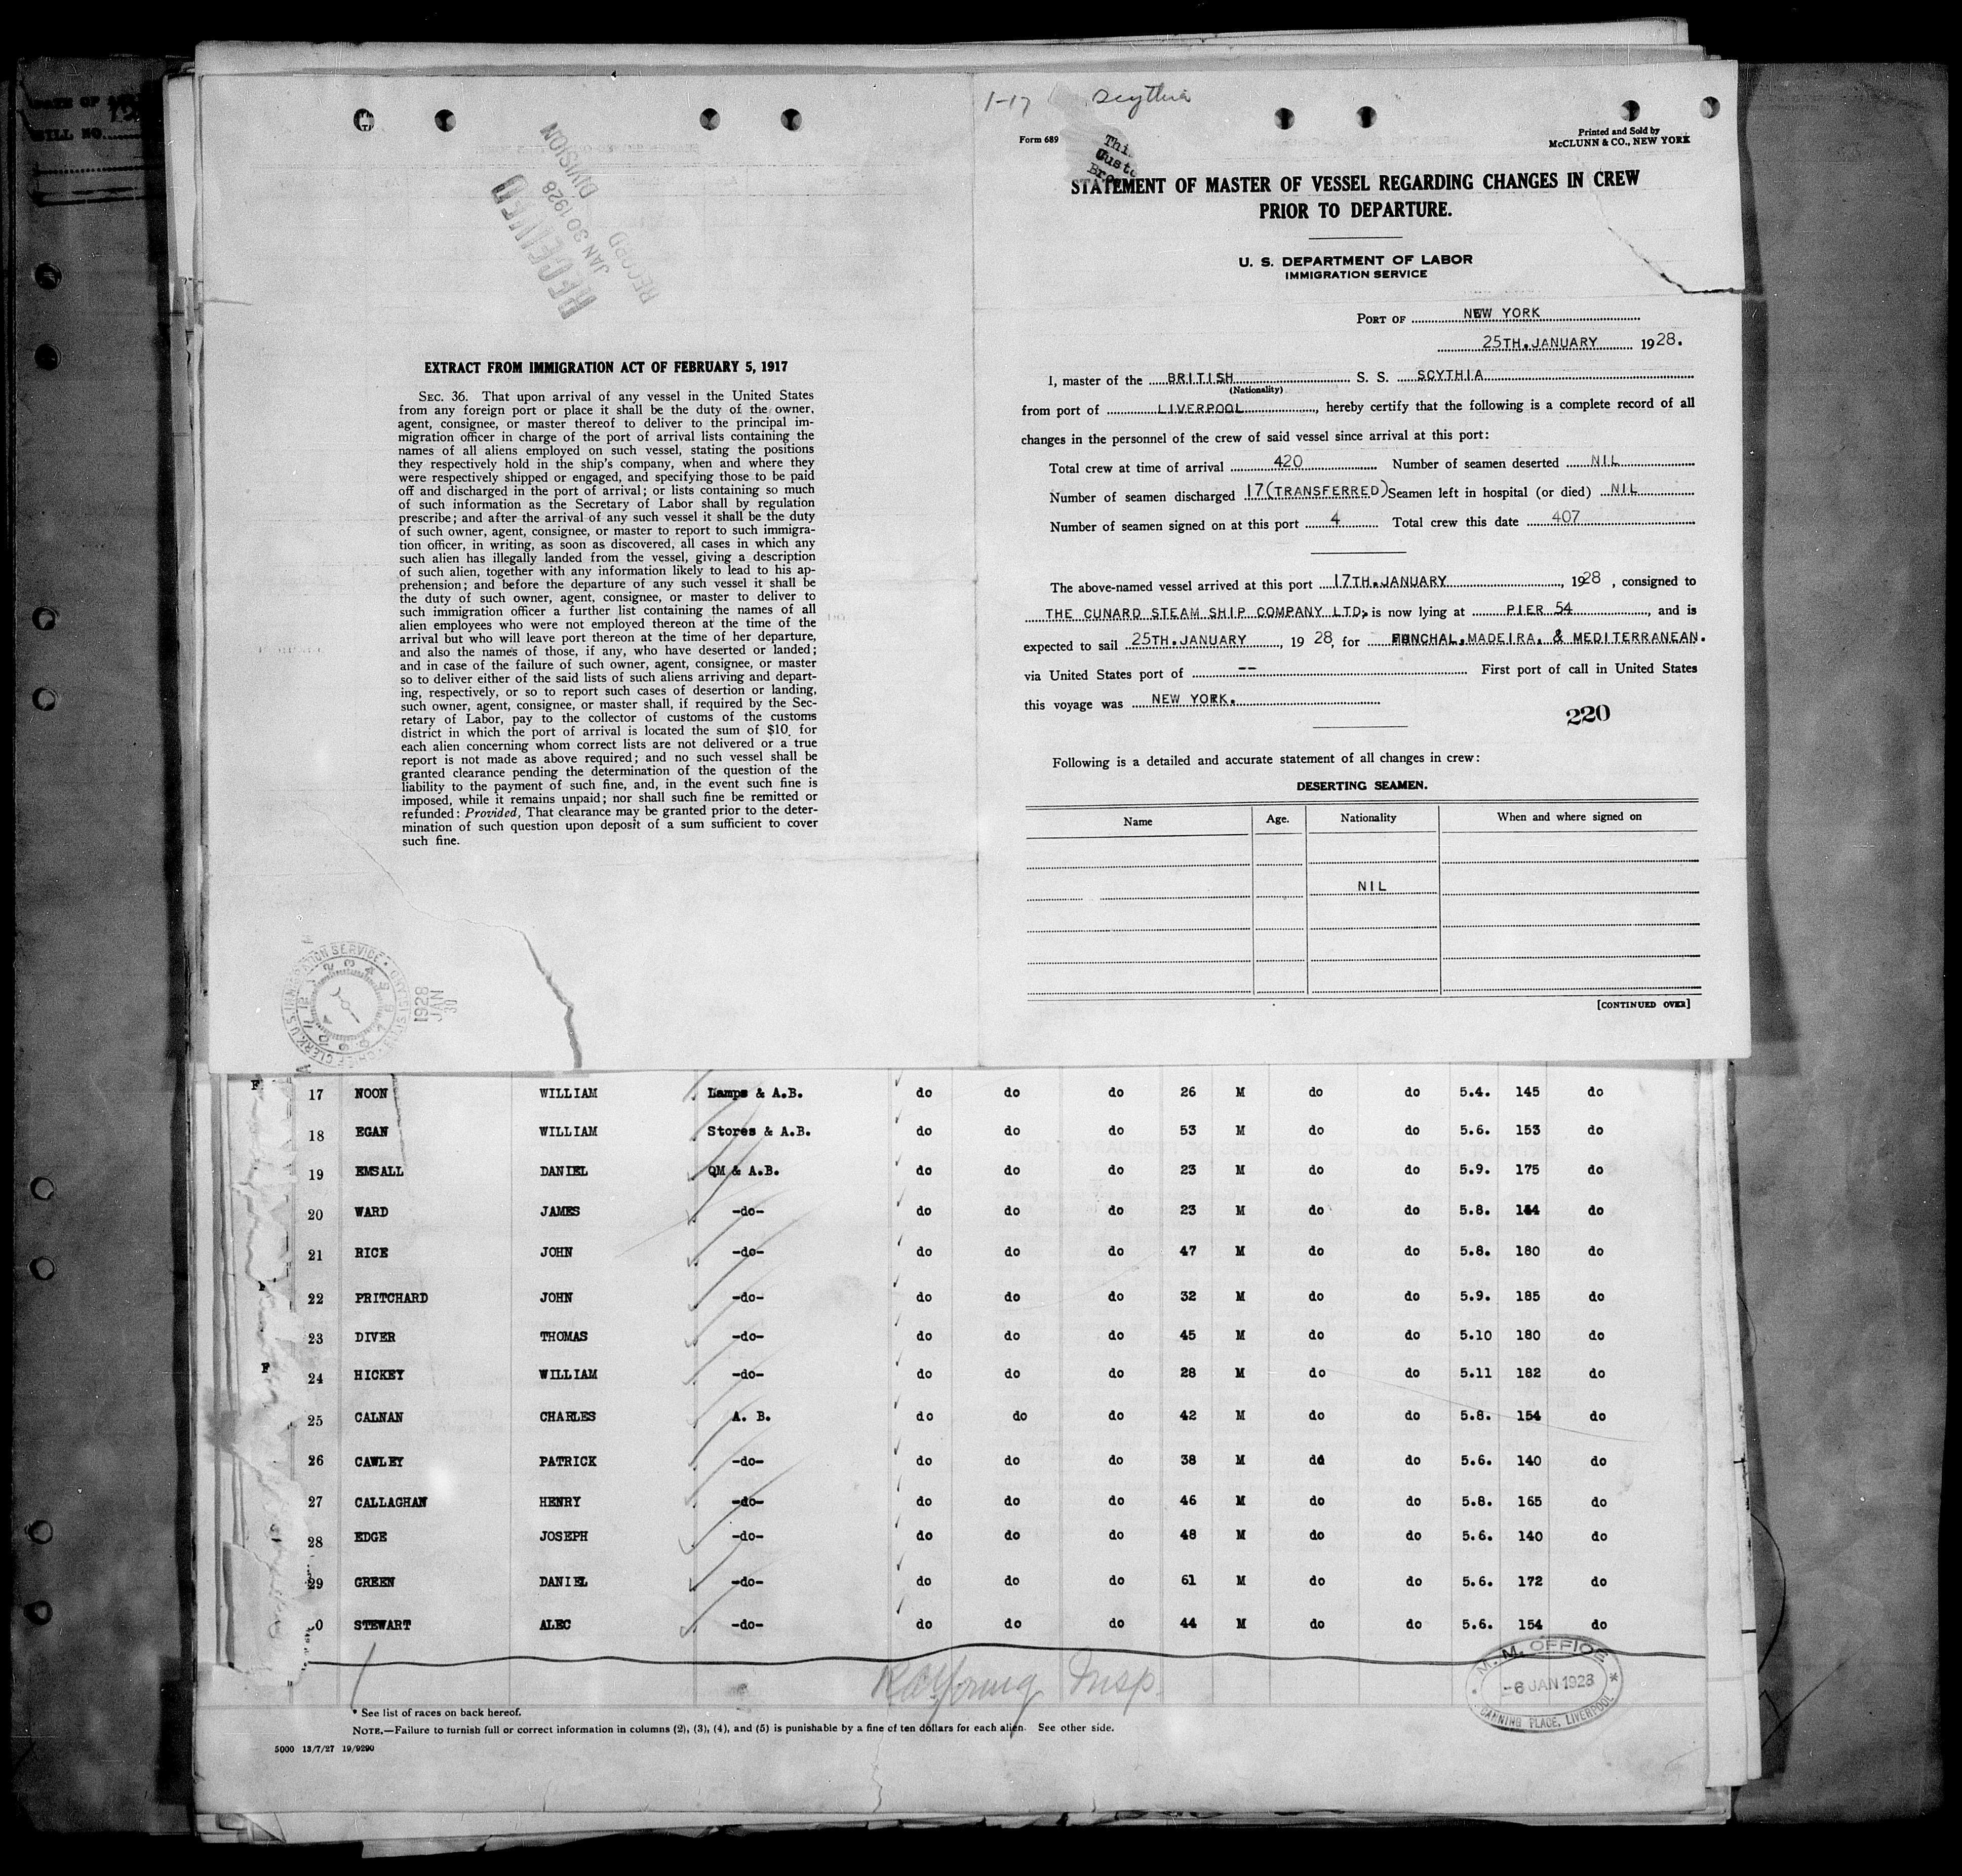 DATE OF
BILL NO.
RECEIVED
JAN 30 1928
RECORD
DIVISION
EXTRACT FROM IMMIGRATION ACT OF FEBRUARY 5, 1917
SEC. 36. That upon arrival of any vessel in the United States
from any foreign port or place it shall be the duty of the owner,
agent, consignee, or master thereof to deliver to the principal im-
migration officer in charge of the port of arrival lists containing the
names of all aliens employed on such vessel, stating the positions
they respectively hold in the ship's company, when and where they
were respectively shipped or engaged, and specifying those to be paid
off and discharged in the port of arrival; or lists containing so much
of such information as the Secretary of Labor shall by regulation
prescribe; and after the arrival of any such vessel it shall be the duty
of such owner, agent, consignee, or master to report to such immigra-
tion officer, in writing, as soon as discovered, all cases in which any
such alien has illegally landed from the vessel, giving a description
of such alien, together with any information likely to lead to his ap-
prehension; and before the departure of any such vessel it shall be
the duty of such owner, agent, consignee, or master to deliver to
such immigration officer a further list containing the names of all
alien employees who were not employed thereon at the time of the
arrival but who will leave port thereon at the time of her departure,
and also the names of those, if any, who have deserted or landed;
and in case of the failure of such owner, agent, consignee, or master
so to deliver either of the said lists of such aliens arriving and depart-
ing, respectively, or so to report such cases of desertion or landing,
such owner, agent, consignee, or master shall, if required by the Sec-
retary of Labor, pay to the collector of customs of the customs
district in which the port of arrival is located the sum of $10 for
each alien concerning whom correct lists are not delivered or a true
report is not made as above required; and no such vessel shall be
granted clearance pending the determination of the question of the
liability to the payment of such fine, and, in the event such fine is
imposed, while it remains unpaid; nor shall such fine be remitted or
refunded: Provided, That clearance may be granted prior to the deter-
mination of such question upon deposit of a sum sufficient to cover
such fine.
1928
JAN
30
1-17 Scythia
Form 689
Printed and Sold by
McCLUNN & CO., NEW YORK
STATEMENT OF MASTER OF VESSEL REGARDING CHANGES IN CREW
PRIOR TO DEPARTURE.
U. S. DEPARTMENT OF LABOR
IMMIGRATION SERVICE
PORT OF NEW YORK
25TH.JANUARY 1928.
I, master of the BRITISH S. S. SCYTHIA
(Nationality)
from port of LIVERPOOL, hereby certify that the following is a complete record of all
changes in the personnel of the crew of said vessel since arrival at this port:
Total crew at time of arrival 420 Number of seamen deserted NIL
Number of seamen discharged 17(TRANSFERRED) Seamen left in hospital (or died) NIL
Number of seamen signed on at this port 4 Total crew this date 407
The above-named vessel arrived at this port 17TH.JANUARY, 1928, consigned to
THE CUNARD STEAM SHIP COMPANY LTD; is now lying at PIER 54, and is
expected to sail 25TH.JANUARY, 1928, for FUNCHAL.MADEIRA. & MEDITERRANEAN.
via United States port of -- First port of call in United States
this voyage was NEW YORK.
220
Following is a detailed and accurate statement of all changes in crew:
DESERTING SEAMEN.
Name Age. Nationality When and where signed on
NIL
[CONTINUED OVER]
17 NOON WILLIAM Lamps & A.B. do do do 26 M do do 5.4. 145 do
18 EGAN WILLIAM Stores & A.B. do do do 53 M do do 5.6. 153 do
19 EMSALL DANIEL QM & A.B. do do do 23 M do do 5.9. 175 do
20 WARD JAMES -do- do do do 23 M do do 5.8. do
21 RICE JOHN -do- do do do 47 M do do 5.8. 180 do
22 PRITCHARD JOHN -do- do do do 32 M do do 5.9. 185 do
23 DIVER THOMAS -do- do do do 45 M do do 5.10 180 do
24 HICKEY WILLIAM -do- do do do 28 M do do 5.11 182 do
25 CALNAN CHARLES A. B. do do do 42 M do do 5.8. 154 do
26 CAWLEY PATRICK -do- do do do 38 M do do 5.6. 140 do
27 CALLAGHAN HENRY -do- do do do 46 M do do 5.8. 165 do
28 EDGE JOSEPH -do- do do do 48 M do do 5.6. 140 do
29 GREEN DANIEL -do- do do do 61 M do do 5.6. 172 do
0 STEWART ALEC -do- do do do 44 M do do 5.6. 154 do
Young Insp.
M. M. OFFICE
-6 JAN 1928
CANNING PLACE, LIVERPOOL
* See list of races on back hereof.
NOTE.—Failure to furnish full or correct information in columns (2), (3), (4), and (5) is punishable by a fine of ten dollars for each alien. See other side.
5000 13/7/27 19/9290